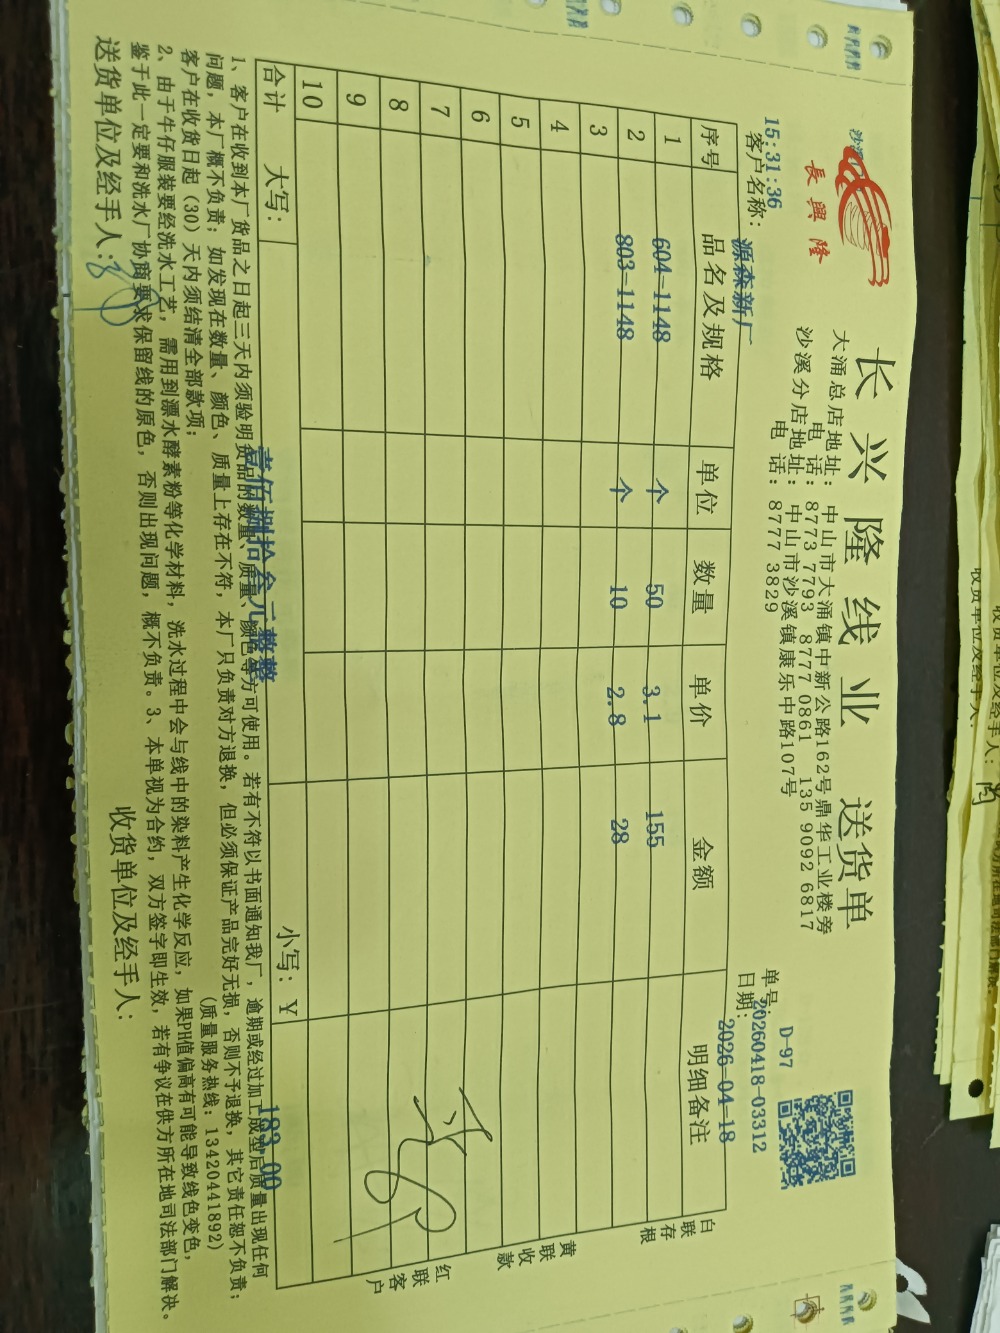 長興隆
长兴隆线业 送货单
大涌总店地址：中山市大涌镇中新公路162号鼎华工业楼旁
电话：8773 7793 8777 0861 135 9092 6817
沙溪分店地址：中山市沙溪镇康乐中路107号
电话：8777 3829
D-97
单号：20260418-03312
日期：2026-04-18
15:31:36
客户名称：源森新厂
序号 品名及规格 单位 数量 单价 金额 明细备注
1 604-1148 个 50 3.1 155
2 803-1148 个 10 2.8 28
3
4
5
6
7
8
9
10
合计 大写：壹佰捌拾叁元整整 小写：¥ 183.00
白联存根
黄联收款
红联客户
1、客户在收到本厂货品之日起三天内须验明货品的数量、质量、颜色等方可使用。若有不符以书面通知我厂，逾期或经过加工成型后质量出现任何
问题，本厂概不负责；如发现在数量、颜色、质量上存在不符，本厂只负责对方退换，但必须保证产品完好无损，否则不予退换，其它责任恕不负责；
客户在收货日起（30）天内须结清全部款项； （质量服务热线：13420441892）
2、由于牛仔服装要经洗水工艺，需用到漂水酵素粉等化学材料，洗水过程中会与线中的染料产生化学反应，如果PH值偏高有可能导致线色变色，
鉴于此一定要和洗水厂协商要求保留线的原色，否则出现问题，概不负责。3、本单视为合约，双方签字即生效，若有争议在供方所在地司法部门解决。
送货单位及经手人： 收货单位及经手人：
收货单位及经手人：